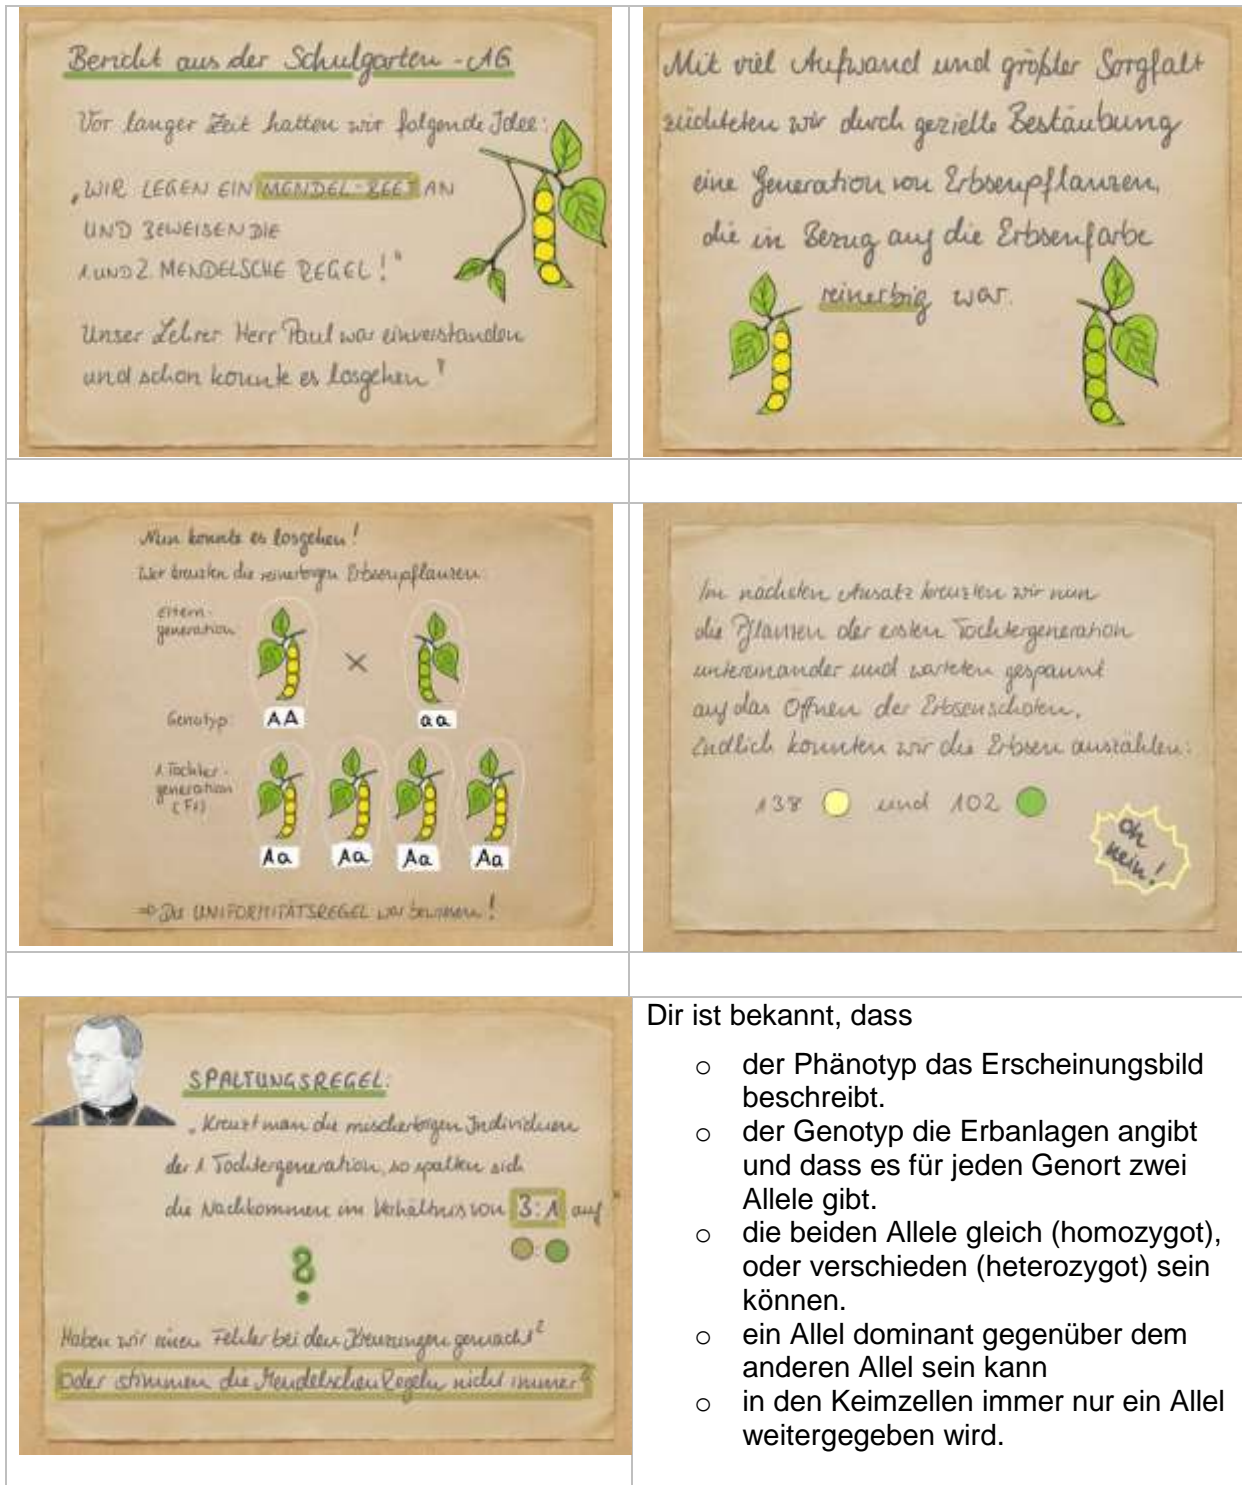 Bericht aus der Schulgarten-AG
Vor langer Zeit hatten wir folgende Idee:
„WIR LEGEN EIN MENDEL-BEET AN
UND BEWEISEN DIE
1 UND 2 MENDELSCHE REGEL!“
Unser Lehrer Herr Paul war einverstanden
und schon konnte es losgehen!
Mit viel Aufwand und größter Sorgfalt
züchteten wir durch gezielte Bestäubung
eine Generation von Erbsenpflanzen,
die in Bezug auf die Erbsenfarbe
reinerbig war.
Nun konnte es losgehen!
Wir kreuzten die reinerbigen Erbsenpflanzen:
Eltern-
generation
×
Genotyp: AA aa
1 Tochter-
generation
(F1)
Aa Aa Aa Aa
⇒ Die UNIFORMITÄTSREGEL war bewiesen!
Im nächsten Ansatz kreuzten wir nun
die Pflanzen der ersten Tochtergeneration
untereinander und warteten gespannt
auf das Öffnen der Erbsenschoten.
Endlich konnten wir die Erbsen auszählen:
138 und 102
Oh
nein!
SPALTUNGSREGEL:
„Kreuzt man die mischerbigen Individuen
der 1 Tochtergeneration, so spalten sich
die Nachkommen im Verhältnis von 3:1 auf“
?
Haben wir einen Fehler bei den Kreuzungen gemacht?
Oder stimmen die Mendelschen Regeln nicht immer?
Dir ist bekannt, dass
o der Phänotyp das Erscheinungsbild
beschreibt.
o der Genotyp die Erbanlagen angibt
und dass es für jeden Genort zwei
Allele gibt.
o die beiden Allele gleich (homozygot),
oder verschieden (heterozygot) sein
können.
o ein Allel dominant gegenüber dem
anderen Allel sein kann
o in den Keimzellen immer nur ein Allel
weitergegeben wird.